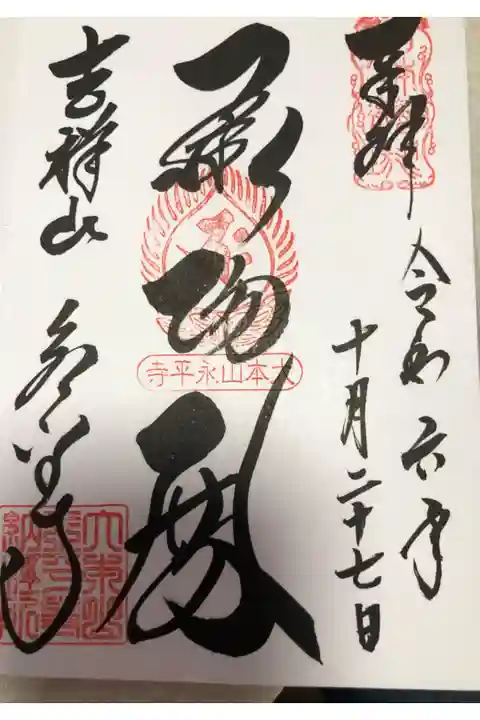 奉拝
令和六年
十月二十七日
承陽殿
大本山永平寺
吉祥山
永平寺